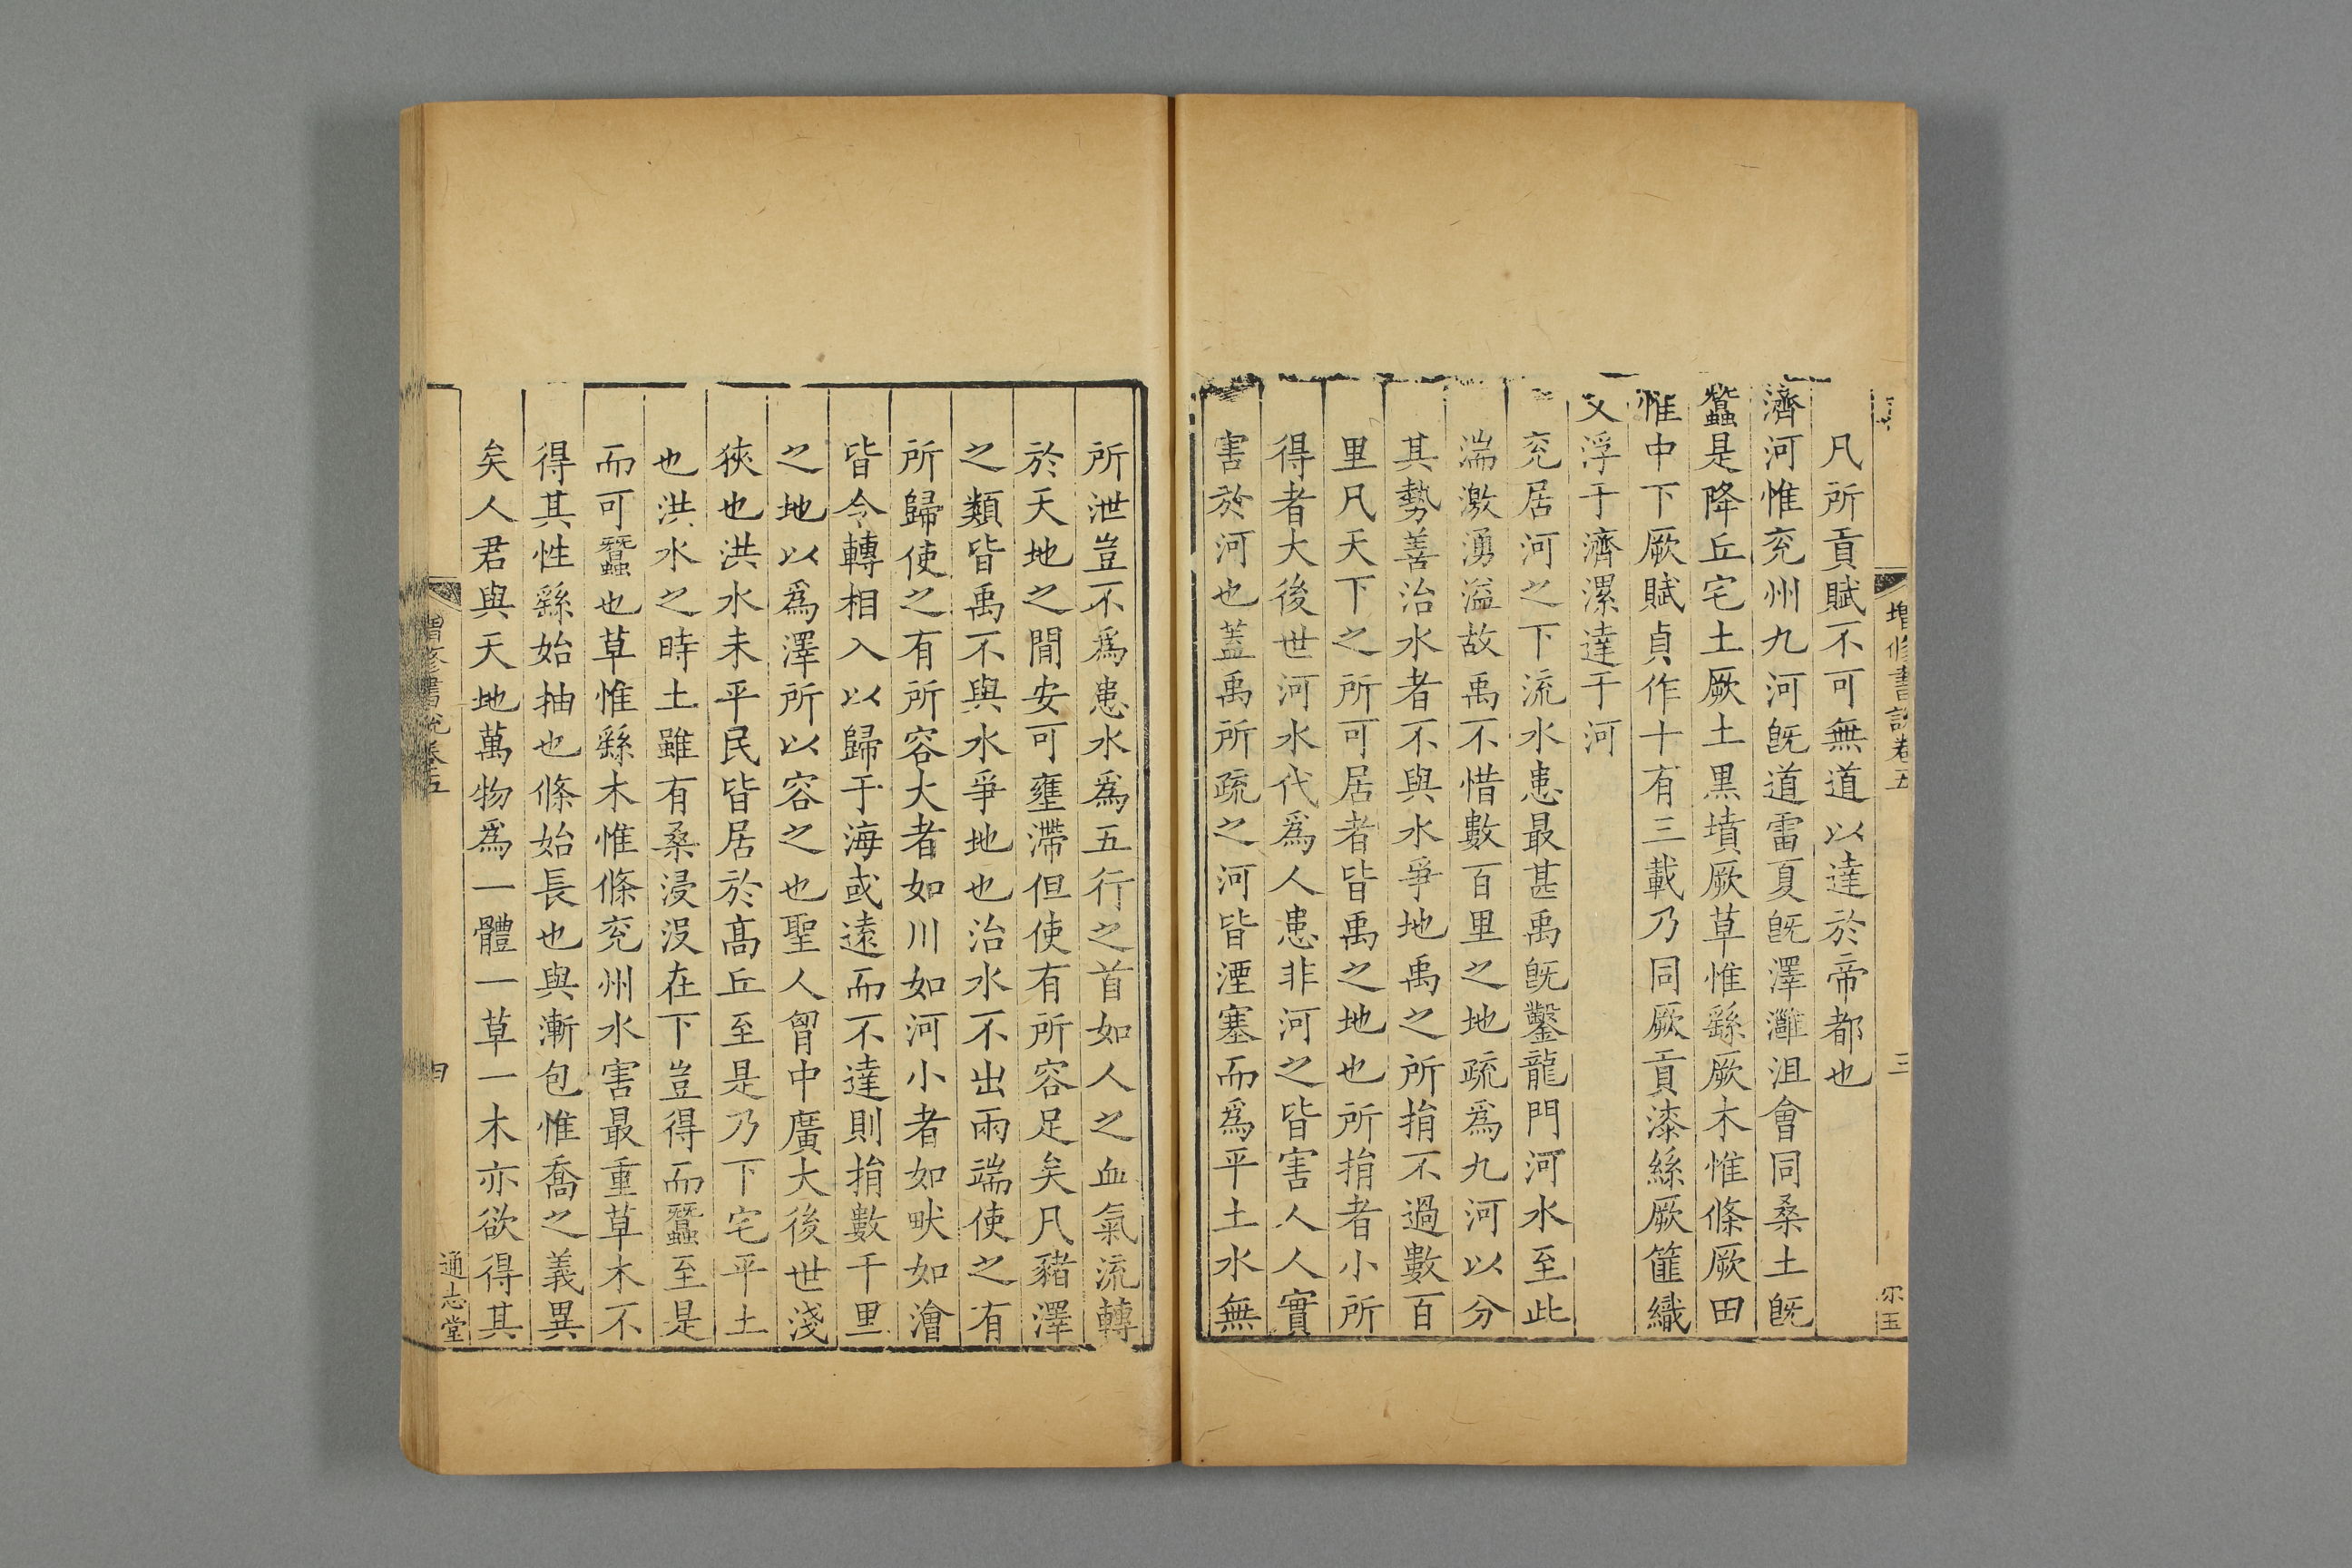 增修書說卷五
三
凡所貢賦不可無道以達於帝都也
濟河惟兖州九河旣道雷夏旣澤灉沮會同桑土旣
蠶是降丘宅土厥土黒墳厥草惟繇厥木惟條厥田
惟中下厥賦貞作十有三載乃同厥貢漆絲厥篚織
文浮于濟漯達于河
兖居河之下流水患最甚禹旣鑿龍門河水至此
湍激湧溢故禹不惜數百里之地疏爲九河以分
其勢善治水者不與水爭地禹之所捐不過數百
里凡天下之所可居者皆禹之地也所捐者小所
得者大後世河水代爲人患非河之皆害人人實
害於河也蓋禹所疏之河皆湮塞而爲平土水無
所泄豈不爲患水爲五行之首如人之血氣流轉
於天地之閒安可壅滯但使有所容足矣凡豬澤
之類皆禹不與水爭地也治水不出兩端使之有
所歸使之有所容大者如川如河小者如畎如澮
皆令轉相入以歸于海或遠而不達則捐數千里
之地以爲澤所以容之也聖人胷中廣大後世淺
狹也洪水未平民皆居於髙丘至是乃下宅平土
也洪水之時土雖有桑浸没在下豈得而蠶至是
而可蠶也草惟繇木惟條兖州水害最重草木不
得其性繇始抽也條始長也與漸包惟喬之義異
矣人君與天地萬物爲一體一草一木亦欲得其
增修書說卷五
通志堂